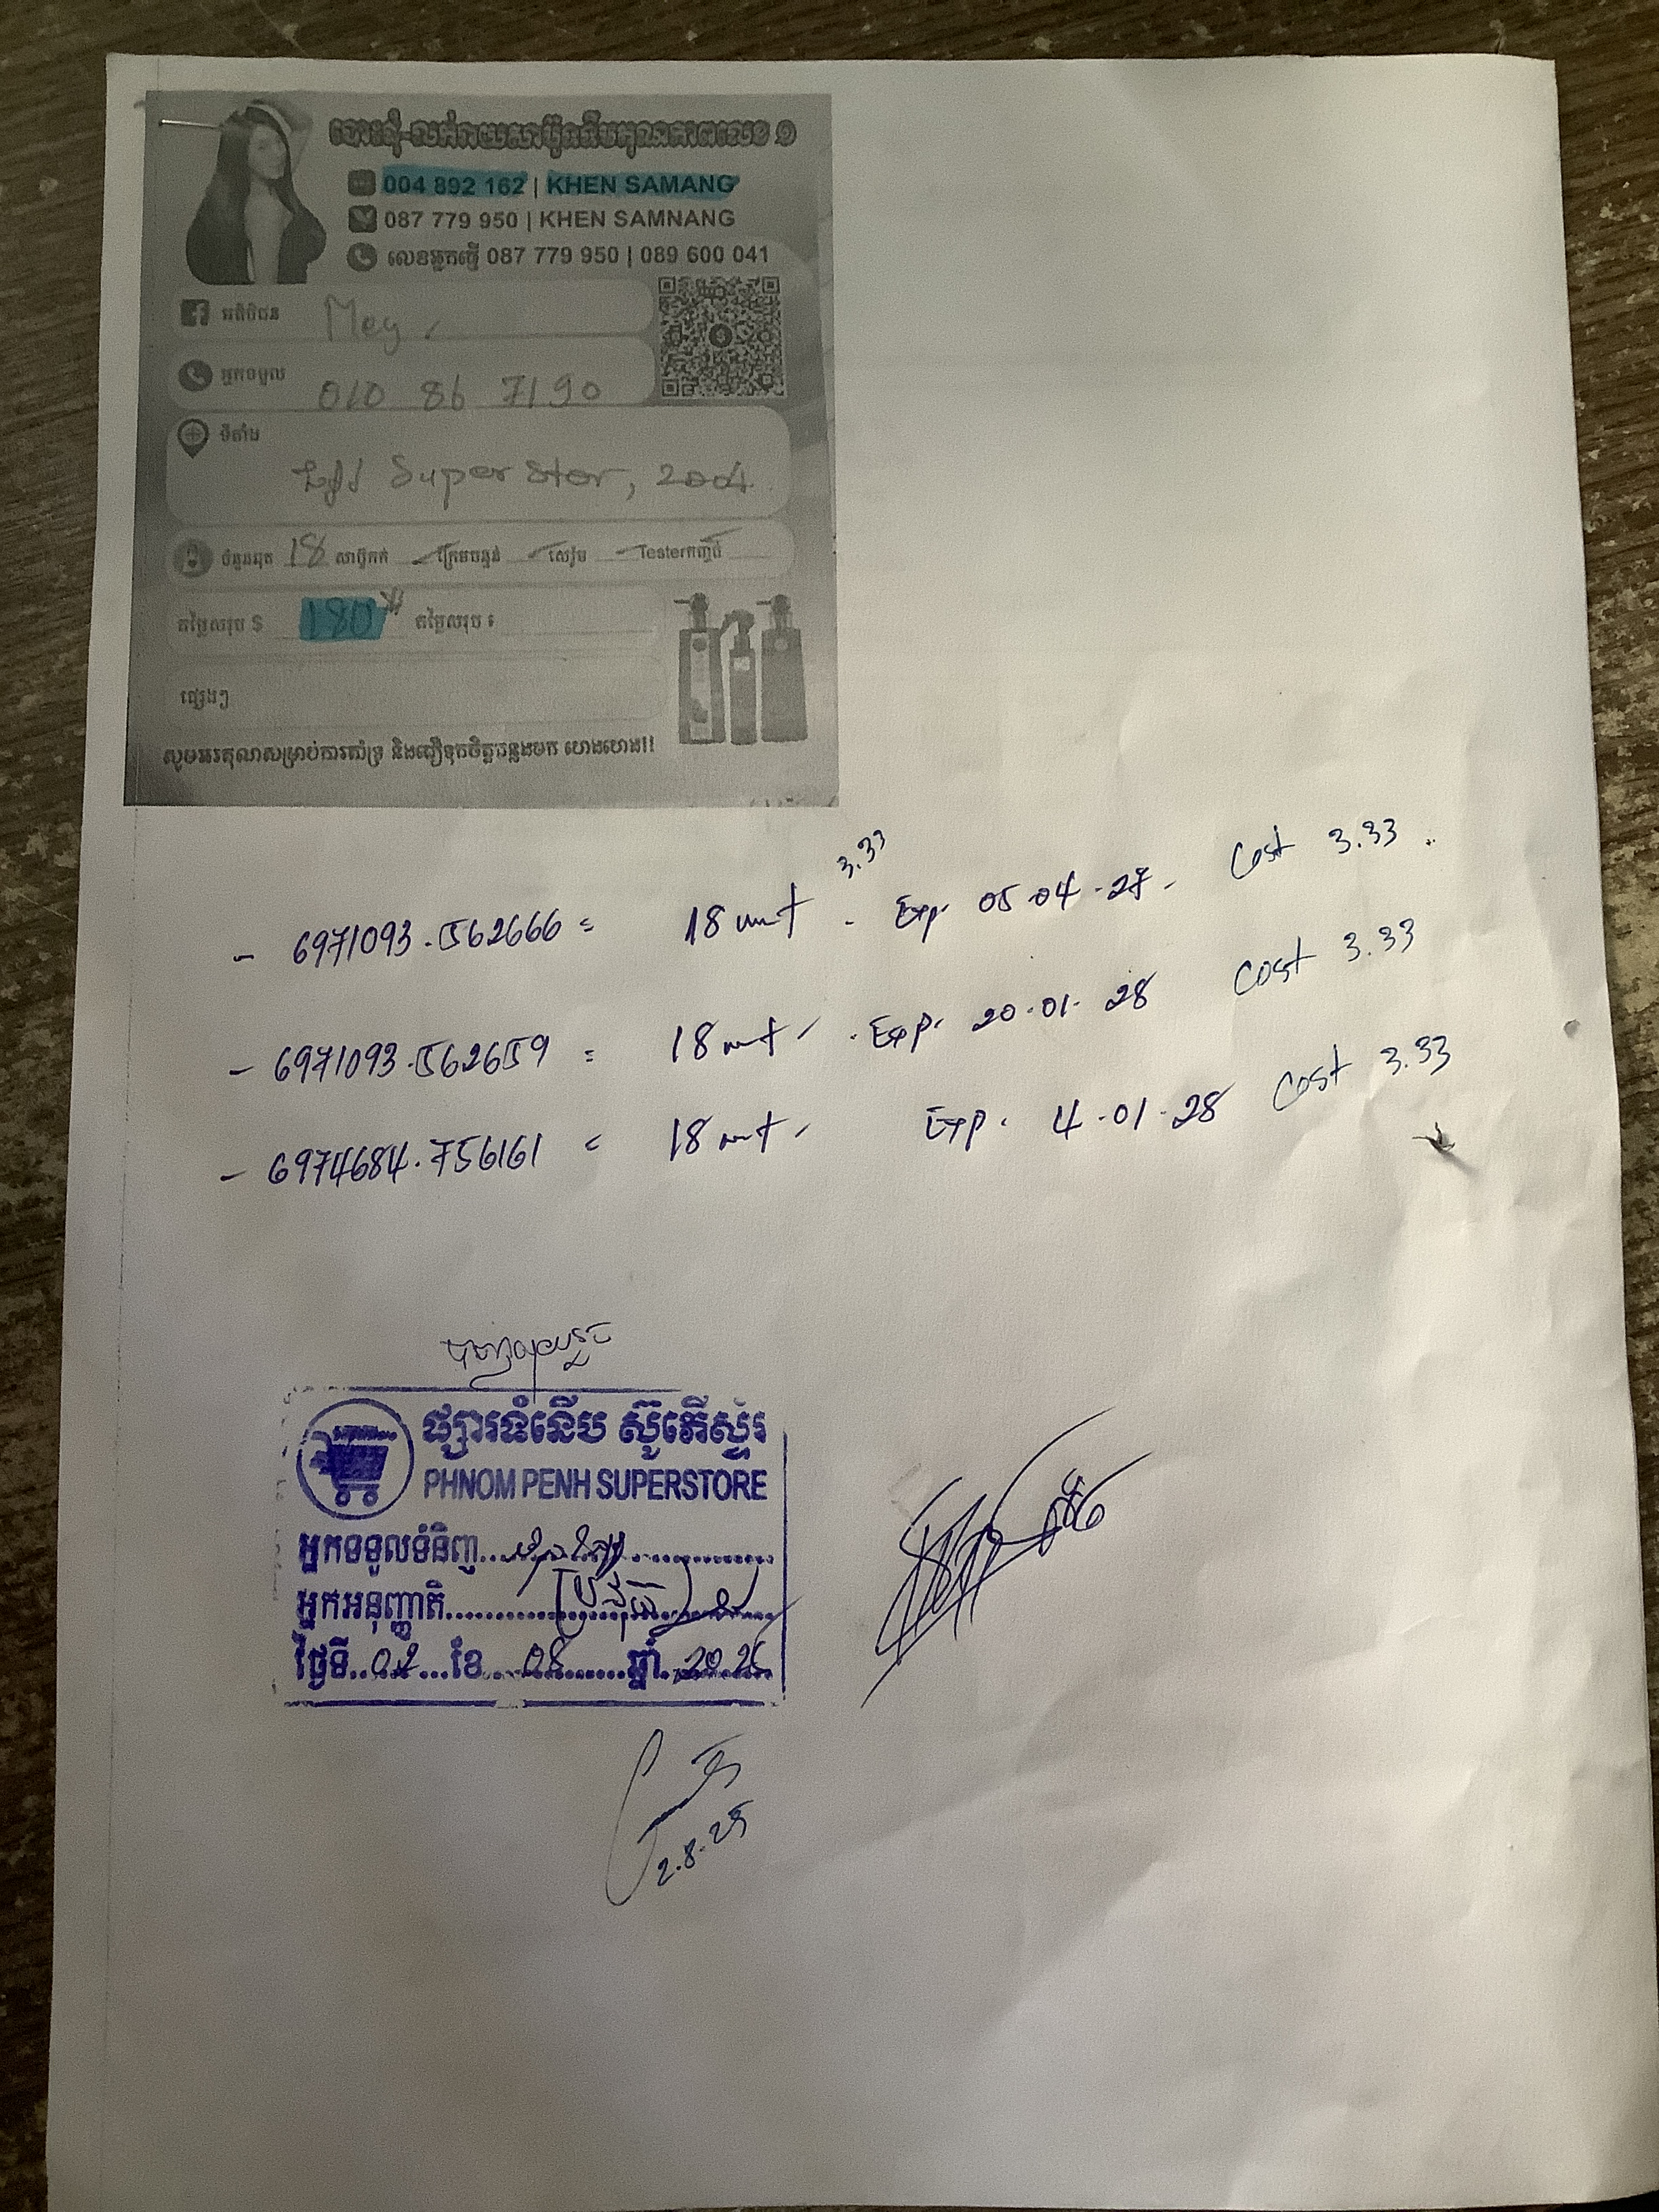 បោះដុំ-លក់រាយសាប៊ូនឹមគុណភាពលេខ ១
004 892 162 | KHEN SAMANG
087 779 950 | KHEN SAMNANG
លេខអ្នកផ្ញើ 087 779 950 | 089 600 041
អតិថិជន Mey
អ្នកទទួល 010 86 7190
ទីតាំង
Super Stor, 2004
ចំនួនឈុត 18 សាប៊ូកក់ ក្រែមបន្ទន់ សេរ៉ូម Testerកញ្ចប់
តម្លៃសរុប $ 180 តម្លៃសរុប ៛
ផ្សេងៗ
សូមអរគុណសម្រាប់ការគាំទ្រ និងជឿទុកចិត្តកន្លងមក ហេងហេង!!
3.33
- 6971093.562666 = 18 unt - Exp. 05-04-27 - Cost 3.33
- 6971093.562659 = 18 unt - Exp. 20-01-28 Cost 3.33
- 6974684.756161 = 18 unt - Exp. 4-01-28 Cost 3.33
ផ្សារទំនើប ស៊ូភើស្ទ័រ
PHNOM PENH SUPERSTORE
អ្នកទទួលទំនិញ
អ្នកអនុញ្ញាតិ
ថ្ងៃទី 02 ខែ 08 ឆ្នាំ 2025
2.8.25